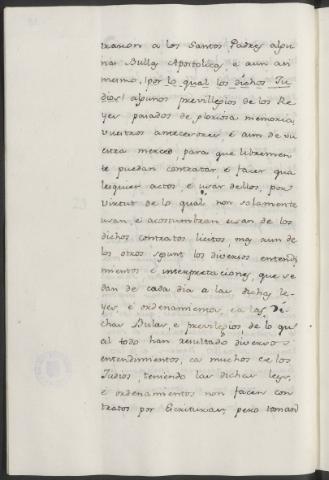 traxon a los Santos Padres algu
nas Bullas Apostolicas, e aun asi
mesmo, (por lo qual los dichos Ju
dios) algunos previllegios de los Re
yes pasados de gloriosa memoria,
vuestros antecesores e aun de vu
estra merced, para que libremen
te puedan contratar e facer qua
lesquier actos e usar dellos, por
virtut de lo qual non solamente
usan, e acostumbran usar de los
dichos contratos licitos, mas aun de
los otros segunt los diversos entendi
mientos e interpretaciones, que se
dan de cada dia a las dichas le
yes, e ordenamientos, e a las di
chas Bulas, e previlegios, de lo qu
al todo han resultado diversos
entendimientos, ca muchos de los
Judios, teniendo las dichas leyes,
e ordenamientos non facen con
tratos por Escrituras, pero toman